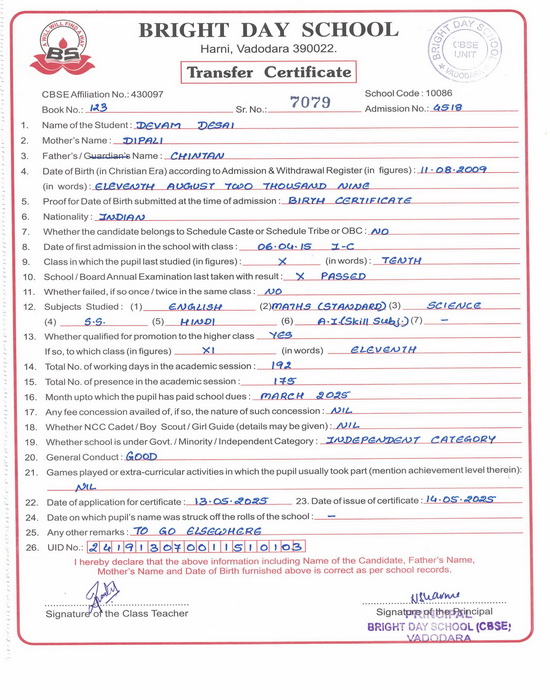 A WILL WILL FIND A WAY
BS
BRIGHT DAY SCHOOL
Harni, Vadodara 390022.
Transfer Certificate
BRIGHT DAY SCHOOL
CBSE
UNIT
VADODARA
CBSE Affiliation No.: 430097 School Code : 10086
Book No.: 123 Sr. No.: 7079 Admission No.: 4518
1. Name of the Student : DEVAM DESAI
2. Mother's Name : DIPALI
3. Father's / Guardian's Name : CHINTAN
4. Date of Birth (in Christian Era) according to Admission & Withdrawal Register (in figures) : 11.08.2009
(in words) : ELEVENTH AUGUST TWO THOUSAND NINE
5. Proof for Date of Birth submitted at the time of admission : BIRTH CERTIFICATE
6. Nationality : INDIAN
7. Whether the candidate belongs to Schedule Caste or Schedule Tribe or OBC : NO
8. Date of first admission in the school with class : 06.04.15 I-C
9. Class in which the pupil last studied (in figures) : X (in words) : TENTH
10. School / Board Annual Examination last taken with result : X PASSED
11. Whether failed, if so once / twice in the same class : NO
12. Subjects Studied : (1) ENGLISH (2) MATHS (STANDARD) (3) SCIENCE
(4) S.S. (5) HINDI (6) A.I (Skill Subj.) (7) -
13. Whether qualified for promotion to the higher class YES
If so, to which class (in figures) XI (in words) ELEVENTH
14. Total No. of working days in the academic session : 192
15. Total No. of presence in the academic session : 175
16. Month upto which the pupil has paid school dues : MARCH 2025
17. Any fee concession availed of, if so, the nature of such concession : NIL
18. Whether NCC Cadet / Boy Scout / Girl Guide (details may be given) : NIL
19. Whether school is under Govt. / Minority / Independent Category : INDEPENDENT CATEGORY
20. General Conduct : GOOD
21. Games played or extra-curricular activities in which the pupil usually took part (mention achievement level therein):
NIL
22. Date of application for certificate : 13.05.2025 23. Date of issue of certificate : 14.05.2025
24. Date on which pupil's name was struck off the rolls of the school : -
25. Any other remarks : TO GO ELSEWHERE
26. UID No.: 241913070011510103
I hereby declare that the above information including Name of the Candidate, Father's Name,
Mother's Name and Date of Birth furnished above is correct as per school records.
Signature of the Class Teacher Signature of the Principal
PRINCIPAL
BRIGHT DAY SCHOOL (CBSE)
VADODARA